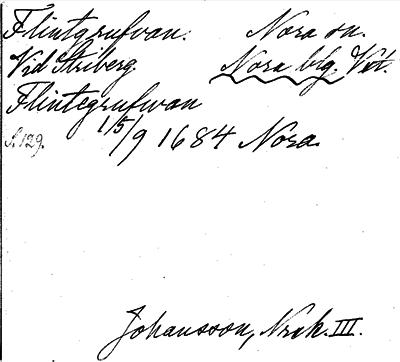 Flintgrufvan. Nora sn.
Vid Striberg. Nora blg. Vstm.
Flintegrufwan
S. 129. 1/5/9 1684 Nora.
Johansson, Nrsk. III.